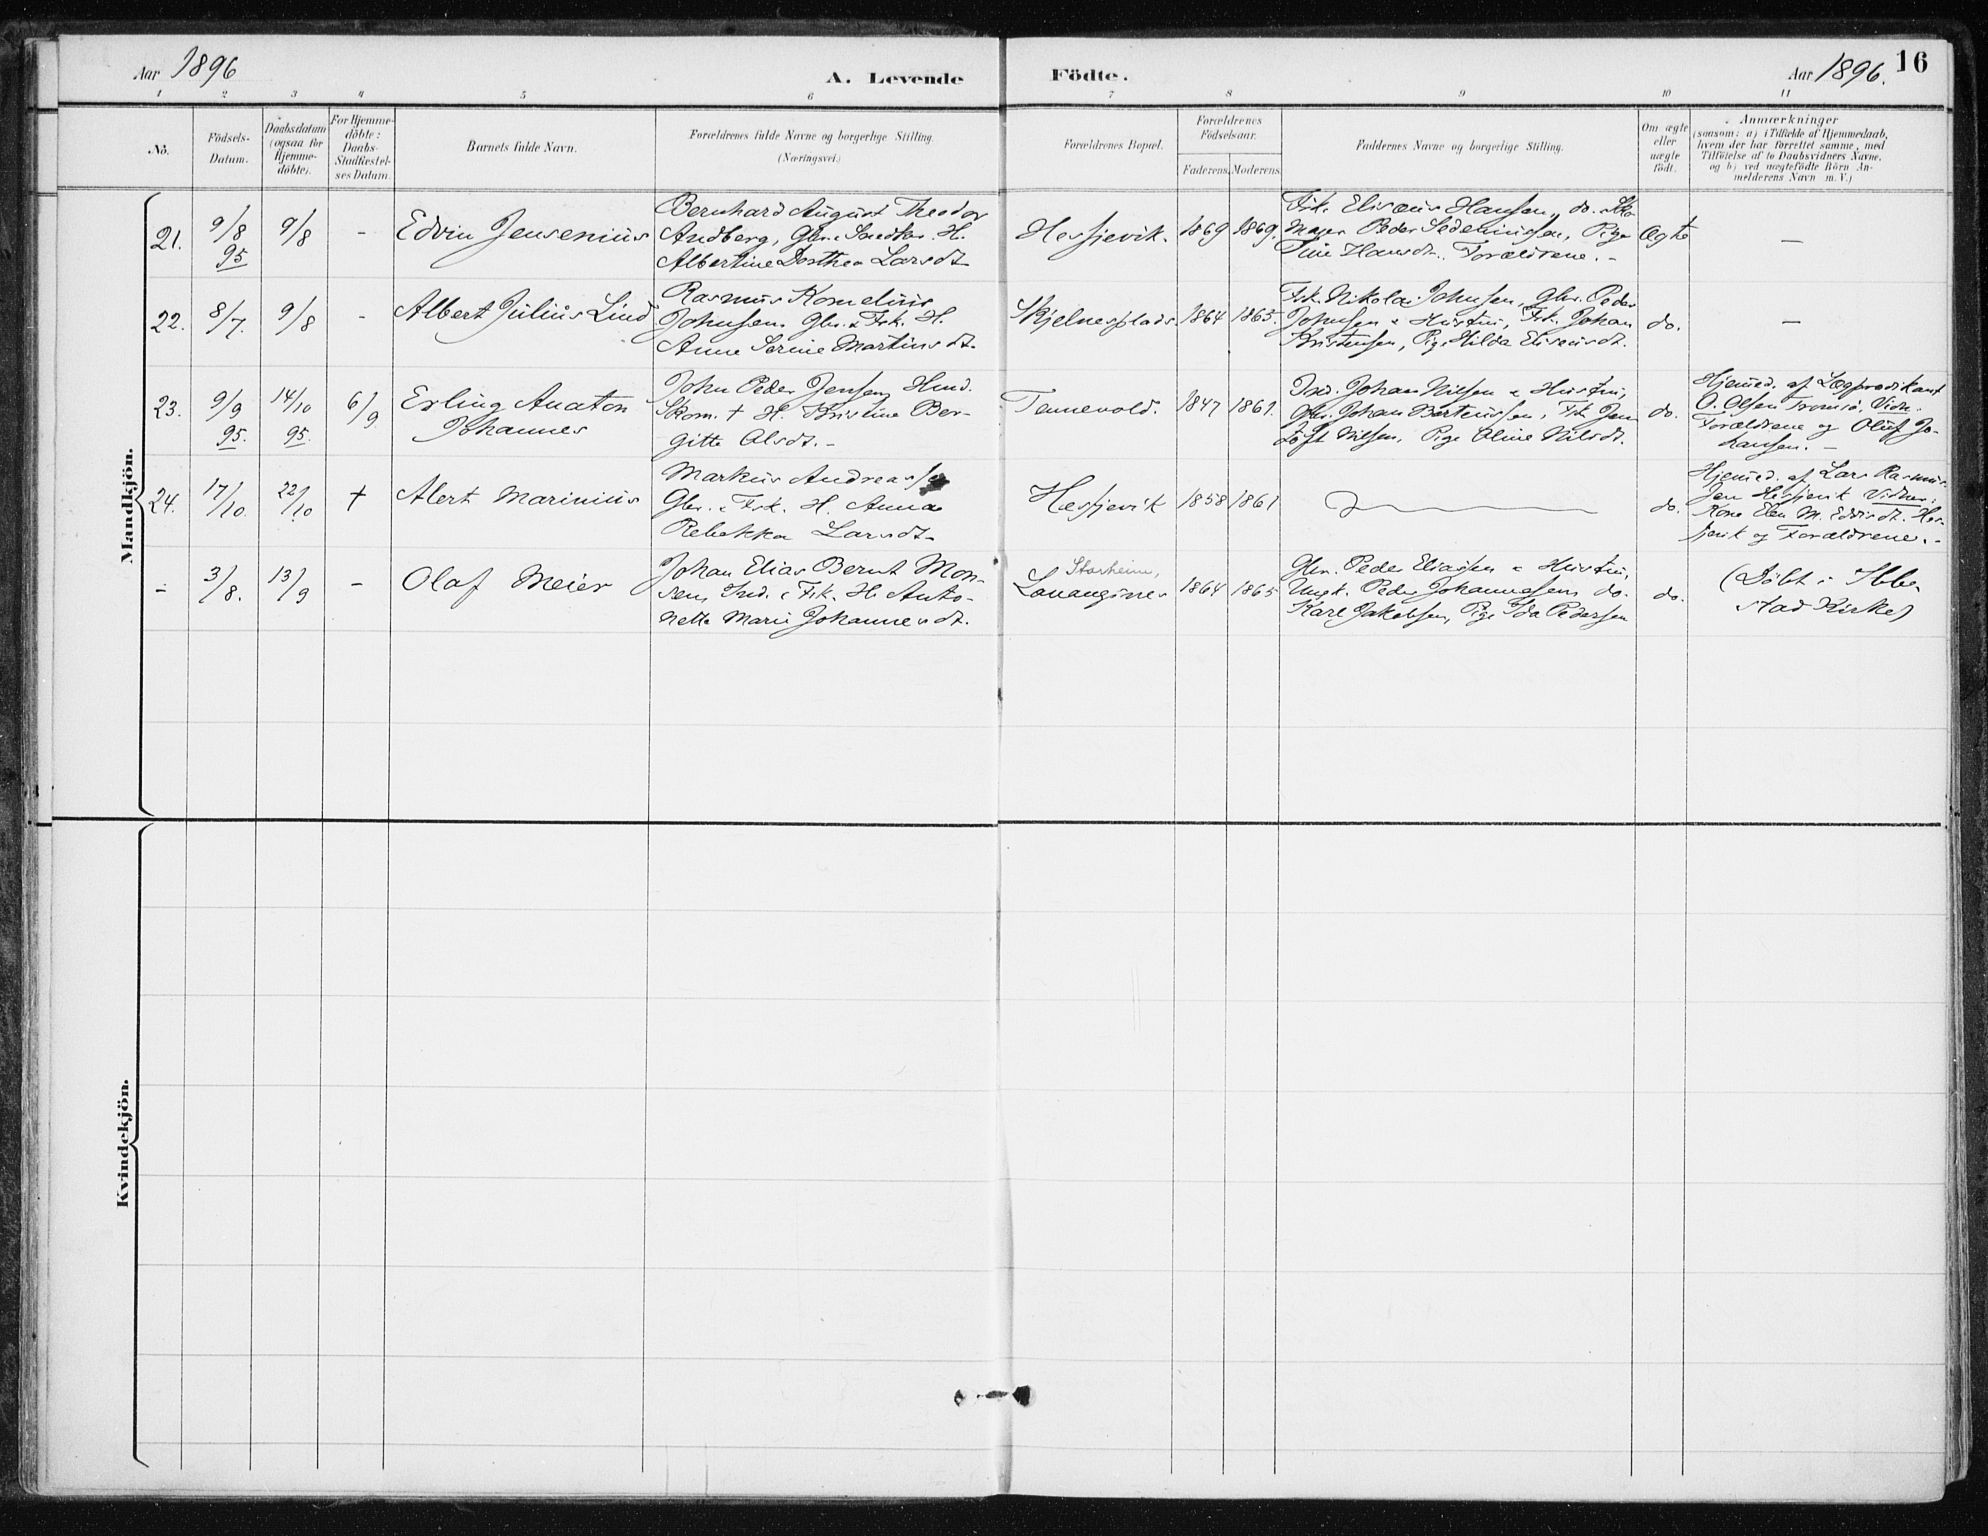 Aar 1896
A. Levende
Födte.
Aar 1896.
16
1 2 3 4 5 6 7 8 9 10 11
No.
Födsels-
Datum.
Daabsdatum
(ogsaa for
Hjemme-
döbte).
For Hjemme-
döbte:
Daabs-
Stadfæstel-
ses Datum.
Barnets fulde Navn.
Forældrenes fulde Navne og borgerlige Stilling.
(Næringsvei.)
Forældrenes Bopæl.
Forældrenes
Födselsaar.
Faderens. Moderens.
Faddernes Navne og borgerlige Stilling.
Om ægte
eller
uægte
født.
Anmærkninger
(saasom: a) i Tilfælde af Hjemmedaab,
hvem der har forrettet samme, med
Tilföielse af to Daabsvidners Navne,
og b) ved uægtefödte Börn An-
melderens Navn m. V.)
Mandkjön.
21.
9/8
95
9/8
-
Edvin Jensenius
Bernhard August Theodor
Andberg, Gbr. H.
Albertine Dorthea Larsdt.
Hesjevik.
1869 1869.
Fsk. Elisæus Hansen, do. Sko
mager Peder Sedeniussen, Pige
Tine Hansdt. Forældrene. -
Ægte
-
22.
8/7.
9/8
-
Albert Julius Lind
Rasmus Kornelius
Johnsen Gbr. & Fsk. H.
Anne Serine Martinsdt.
Skjelnesplads.
1864 1865.
Fsk. Nikolai Johnsen, Gbr. Peder
Johnsen & Hustru, Fsk. Johan
Kristensen, Pige Hilda Eliseusdt.
do.
-
23.
9/9
95.
14/10
95.
6/9
Erling Anaton
Johannes
John Peder Jensen Hmd.
Skom. + H. Kristine Ber-
gitte Olsdt. -
Tennevold.
1847 1861.
Ind. Johan Nilsen & Hustru,
Gbr. Johan Berteussen, Fsk. Jens
Nilsen, Pige Oline Nilsdt.
do.
Hjemmed. af Lægprædikant
O. Olsen Tromsö. Vidn.
Forældrene og Oluf Jo-
hansen. -
24.
17/10.
22/10
+
Alert Marinius
Markus Andreassen
Gbr. & Fsk. H. Anna
Rebekka Larsdt.
Hæsjevik
1858 1861
do.
Hjemmed. af Lars Rasmus-
sen Hesjevik Vidner:
Kone Elen M. Edvisdt. Hes-
jevik og Forældrene. -
-
3/8.
13/9
-
Olaf Meier
Johan Elias Bernt Mon-
sen, Ind. & Fsk. H. Anto-
nette Marie Johannesdt.
Storheim,
Lavangsnes
1864 1865
Gbr. Peder Eliassen & Hustru,
Ungk. Peder Johannessen, do.
Karl Jakobsen, Pige Ida Pedersen
do.
(Döbt i Ibbe-
stad Kirke)
Kvindekjön.